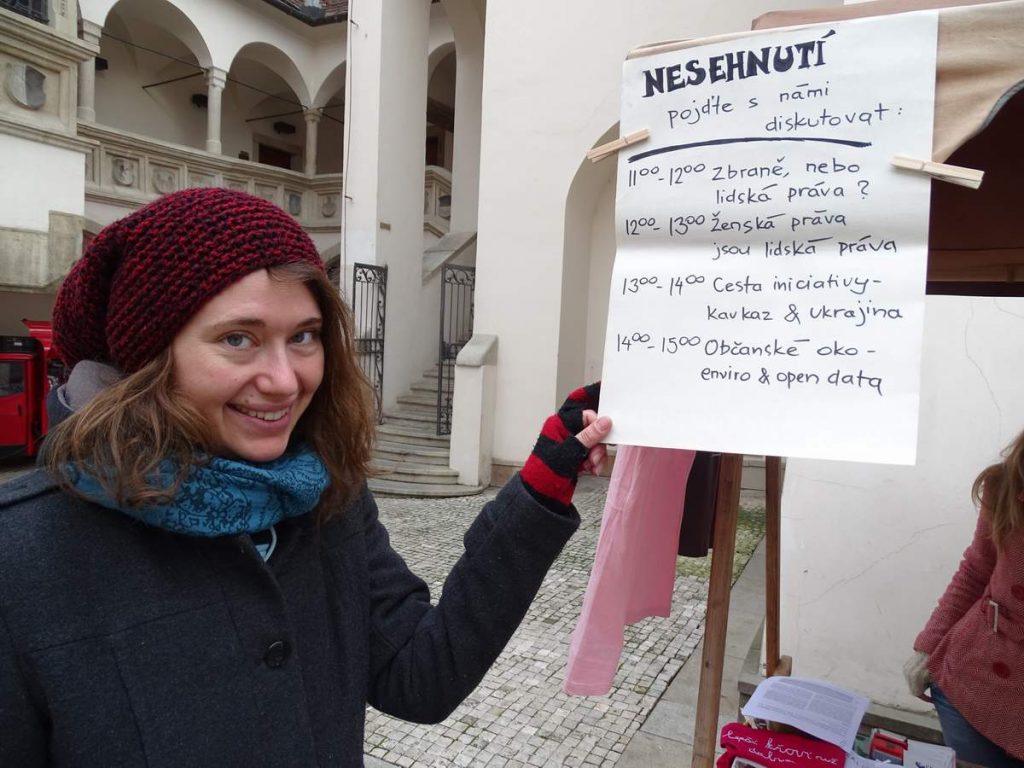 NESEHNUTÍ
pojďte s námi
diskutovat:
11⁰⁰-12⁰⁰ Zbraně, nebo
lidská práva?
12⁰⁰-13⁰⁰ Ženská práva
jsou lidská práva
13⁰⁰-14⁰⁰ Cesta iniciativy-
kavkaz & ukrajina
14⁰⁰-15⁰⁰ Občanské oko-
enviro & open data